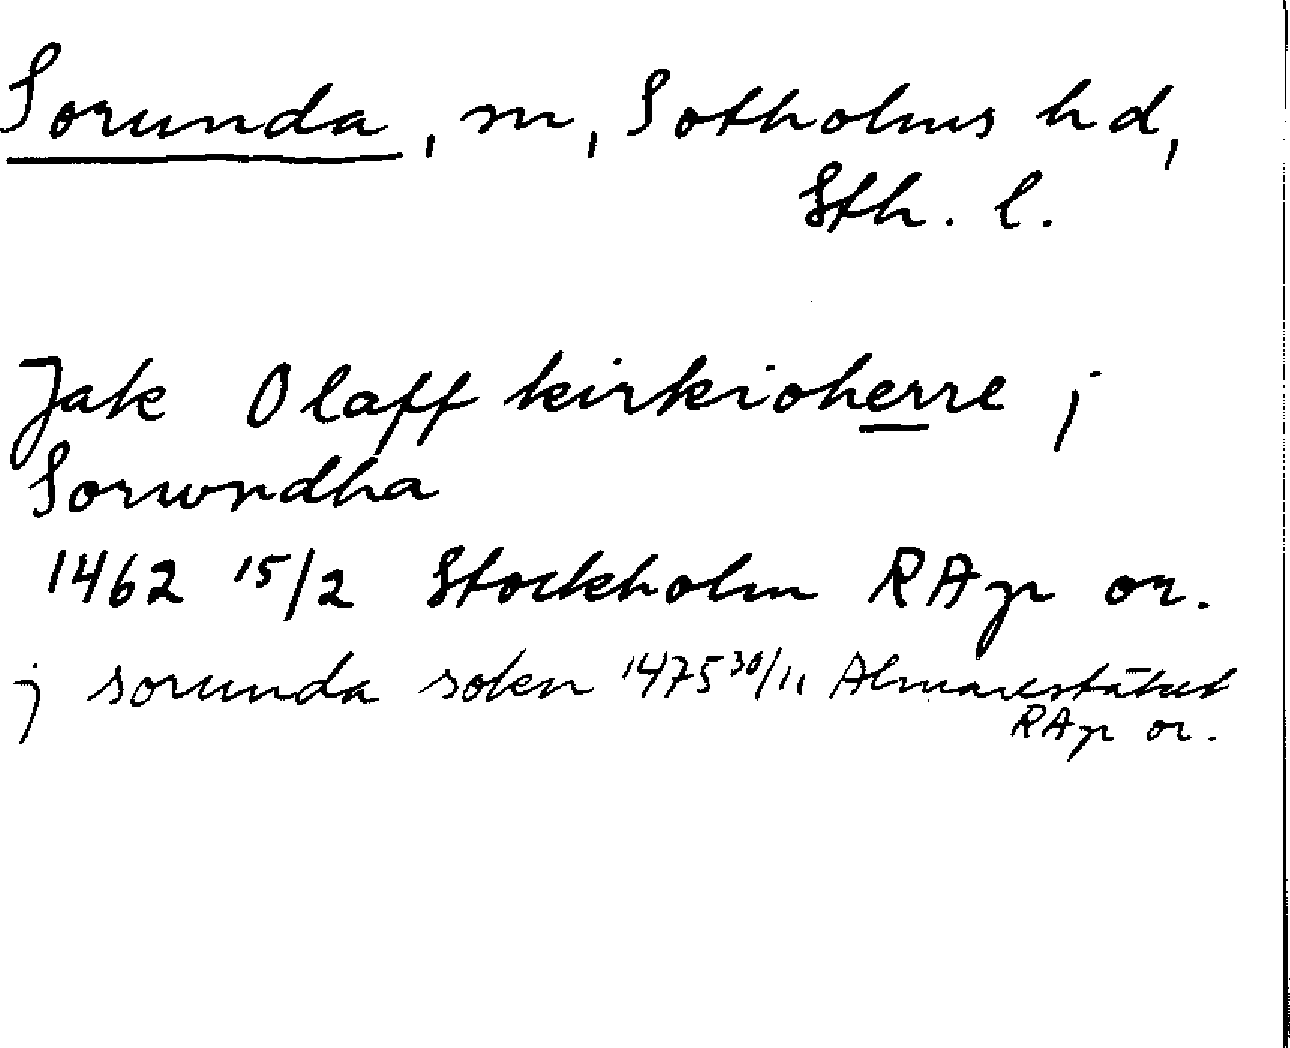 Sorunda, sn, Sotholms hd,
Sth. l.
Jak Olaff kirkioherre j
Sorwndha
1462 15/2 Stockholm RAp or.
j sorunda sokn 1475 30/11 Almarestäket
RAp or.